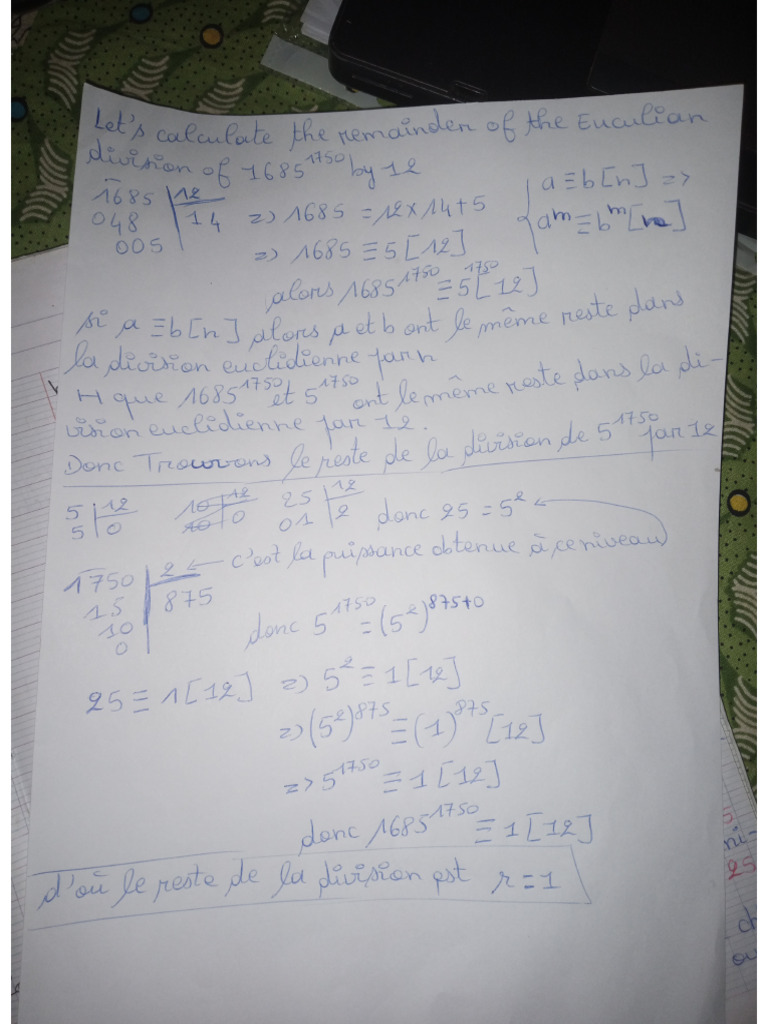 Let's calculate the remainder of the Euculian
division of 1685^1750 by 12
1685 | 12
048 | 14
005
=> 1685 = 12×14+5
=> 1685 ≡ 5 [12]
{ a ≡ b [n] =>
a^m ≡ b^m [n]
alors 1685^1750 ≡ 5^1750 [12]
si a ≡ b [n] alors a et b ont le même reste dans
la division euclidienne par n
H que 1685^1750 et 5^1750 ont le même reste dans la di-
vision euclidienne par 12.
Donc Trouvons le reste de la division de 5^1750 par 12
5 | 12
5 | 0
10 | 12
10 | 0
25 | 12
01 | 2
donc 25 = 5^2
1750 | 2 ← c'est la puissance obtenue à ce niveau
15 | 875
10
0
donc 5^1750 = (5^2)^875+0
25 ≡ 1 [12] => 5^2 ≡ 1 [12]
=> (5^2)^875 ≡ (1)^875 [12]
=> 5^1750 ≡ 1 [12]
donc 1685^1750 ≡ 1 [12]
d'où le reste de la division est r = 1
5
ni-
25
ch
ou